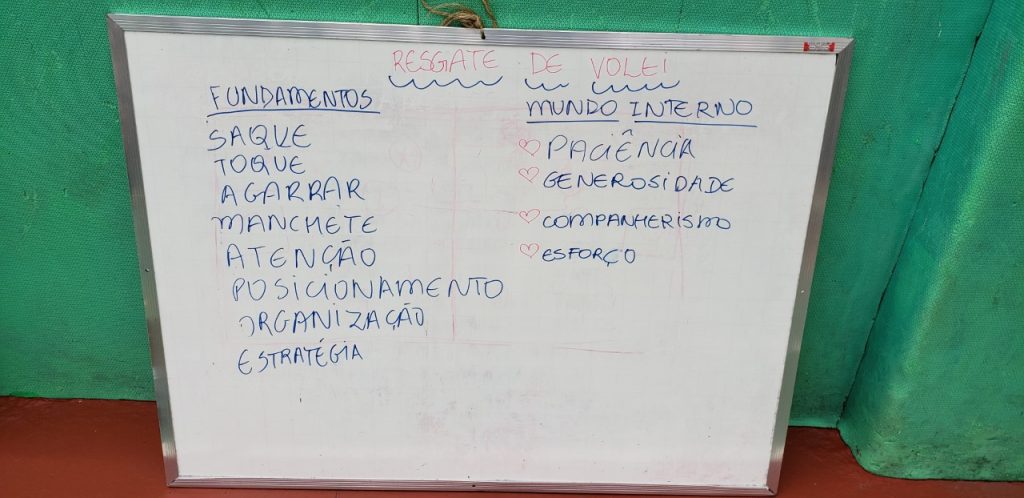 RESGATE DE VOLEI
FUNDAMENTOS
SAQUE
TOQUE
AGARRAR
MANCHETE
ATENÇÃO
POSICIONAMENTO
ORGANIZAÇÃO
ESTRATÉGIA
MUNDO INTERNO
PACIÊNCIA
GENEROSIDADE
COMPANHERISMO
ESFORÇO